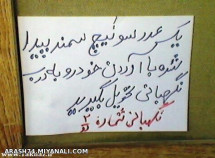 یک عدد سوئیچ سمند پیدا
شده با آوردن خودرو به درب
نگهبانی تحویل بگیرید
نگهبانی شماره ۲
ARASH74.MIYANALI.COM